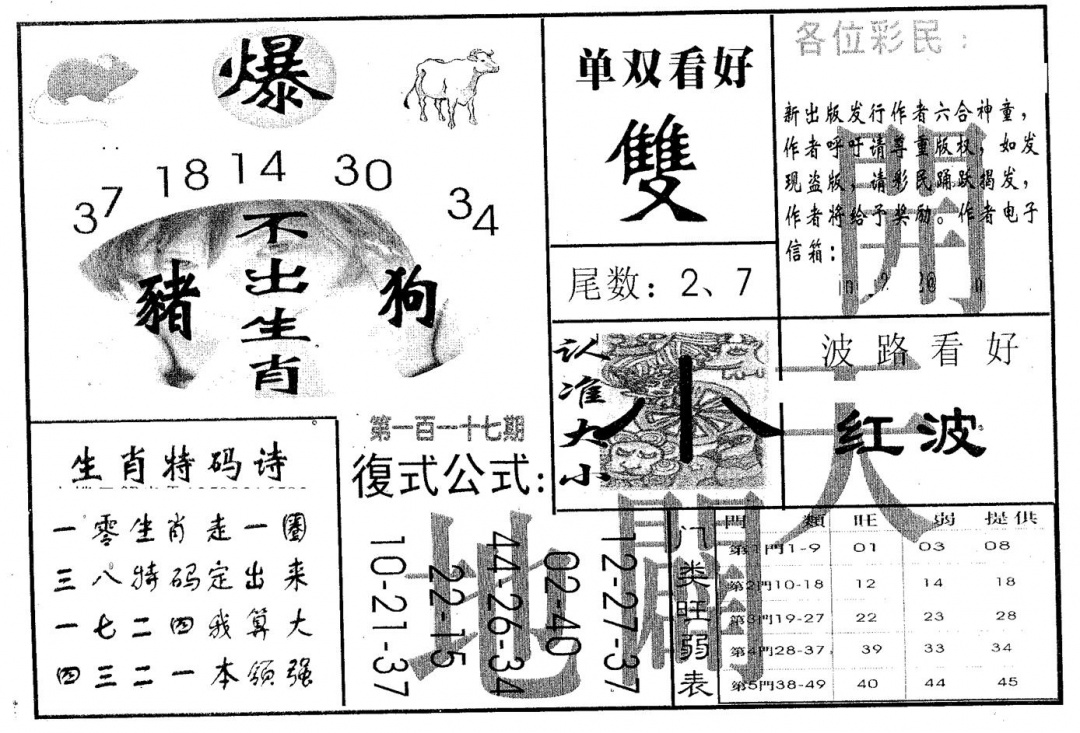 爆
37 18 14 30 34
不出生肖
豬
狗
单双看好
雙
尾数：2、7
各位彩民：
新出版发行作者六合神童，
作者呼吁请尊重版权，如发
现盗版，请彩民踊跃揭发，
作者将给予奖励。作者电子
信箱：
认准大小
小
波路看好
红波
天
開
地
闢
生肖特码诗
一零生肖走一圈
三八特码定出来
一七二四我算大
四三二一本领强
第一百一十七期
復式公式：
10-21-37
22-15
44-26-34
02-40
12-27-37
门类旺弱表
門 類 旺 弱 提供
第1門1-9 01 03 08
第2門10-18 12 14 18
第3門19-27 22 23 28
第4門28-37 39 33 34
第5門38-49 40 44 45